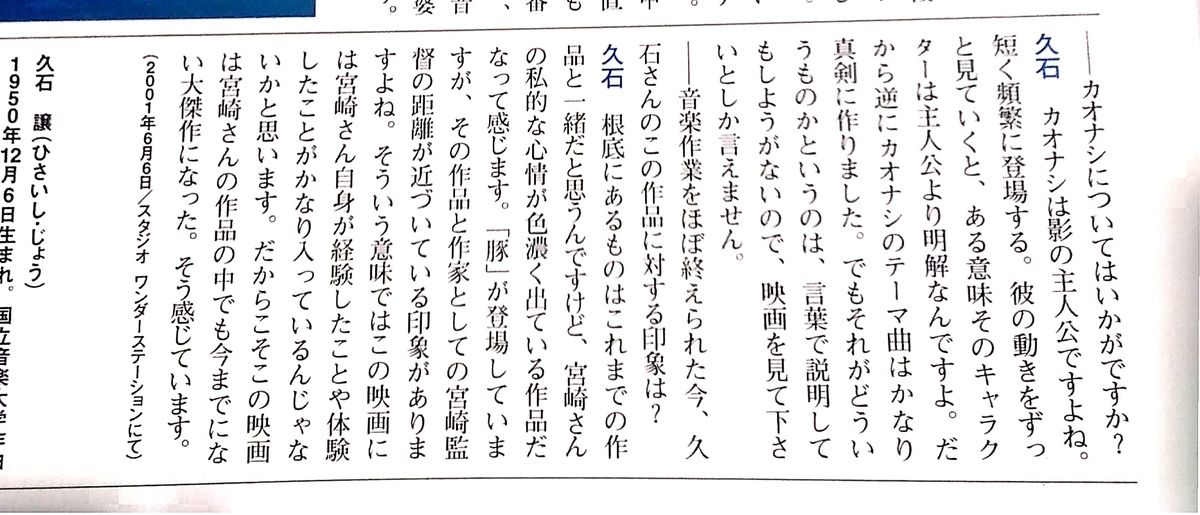 ――カオナシについてはいかがですか?
久石　カオナシは影の主人公ですよね。
短く頻繁に登場する。彼の動きをずっ
と見ていくと、ある意味そのキャラク
ターは主人公より明解なんですよ。だ
から逆にカオナシのテーマ曲はかなり
真剣に作りました。でもそれがどうい
うものかというのは、言葉で説明して
もしようがないので、映画を見て下さ
いとしか言えません。
――音楽作業をほぼ終えられた今、久
石さんのこの作品に対する印象は?
久石　根底にあるものはこれまでの作
品と一緒だと思うんですけど、宮崎さん
の私的な心情が色濃く出ている作品だ
なって感じます。「豚」が登場していま
すが、その作品と作家としての宮崎監
督の距離が近づいている印象がありま
すよね。そういう意味ではこの映画に
は宮崎さん自身が経験したことや体験
したことがかなり入っているんじゃな
いかと思います。だからこそこの映画
は宮崎さんの作品の中でも今までにな
い大傑作になった。そう感じています。
(2001年6月6日/スタジオ ワンダーステーションにて)
久石　譲(ひさいし・じょう)
1950年12月6日生まれ。国立音楽大学